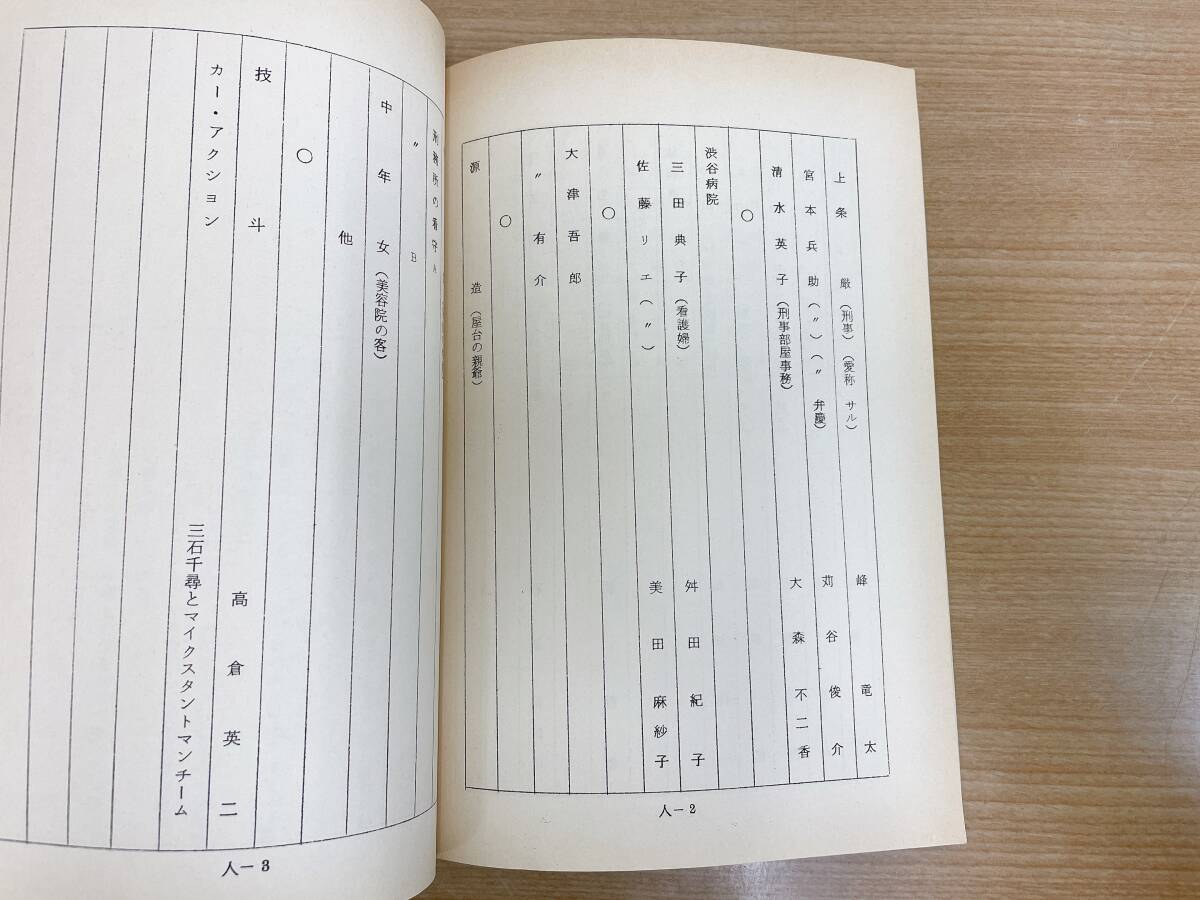 上条 厳(刑事)(愛称 サル) 峰 竜太
宮本兵助(〃)(〃 弁慶) 苅谷俊介
清水英子(刑事部屋事務) 大森不二香
○
渋谷病院
三田典子(看護婦) 舛田紀子
佐藤リエ(〃) 美田麻紗子
○
大津吾郎
〃 有介
○
源 造(屋台の親爺)
人-2
刑務所の看守A
〃 B
中年女(美容院の客)
他
○
技斗 高倉英二
カー・アクション 三石千尋とマイクスタントマンチーム
人-3